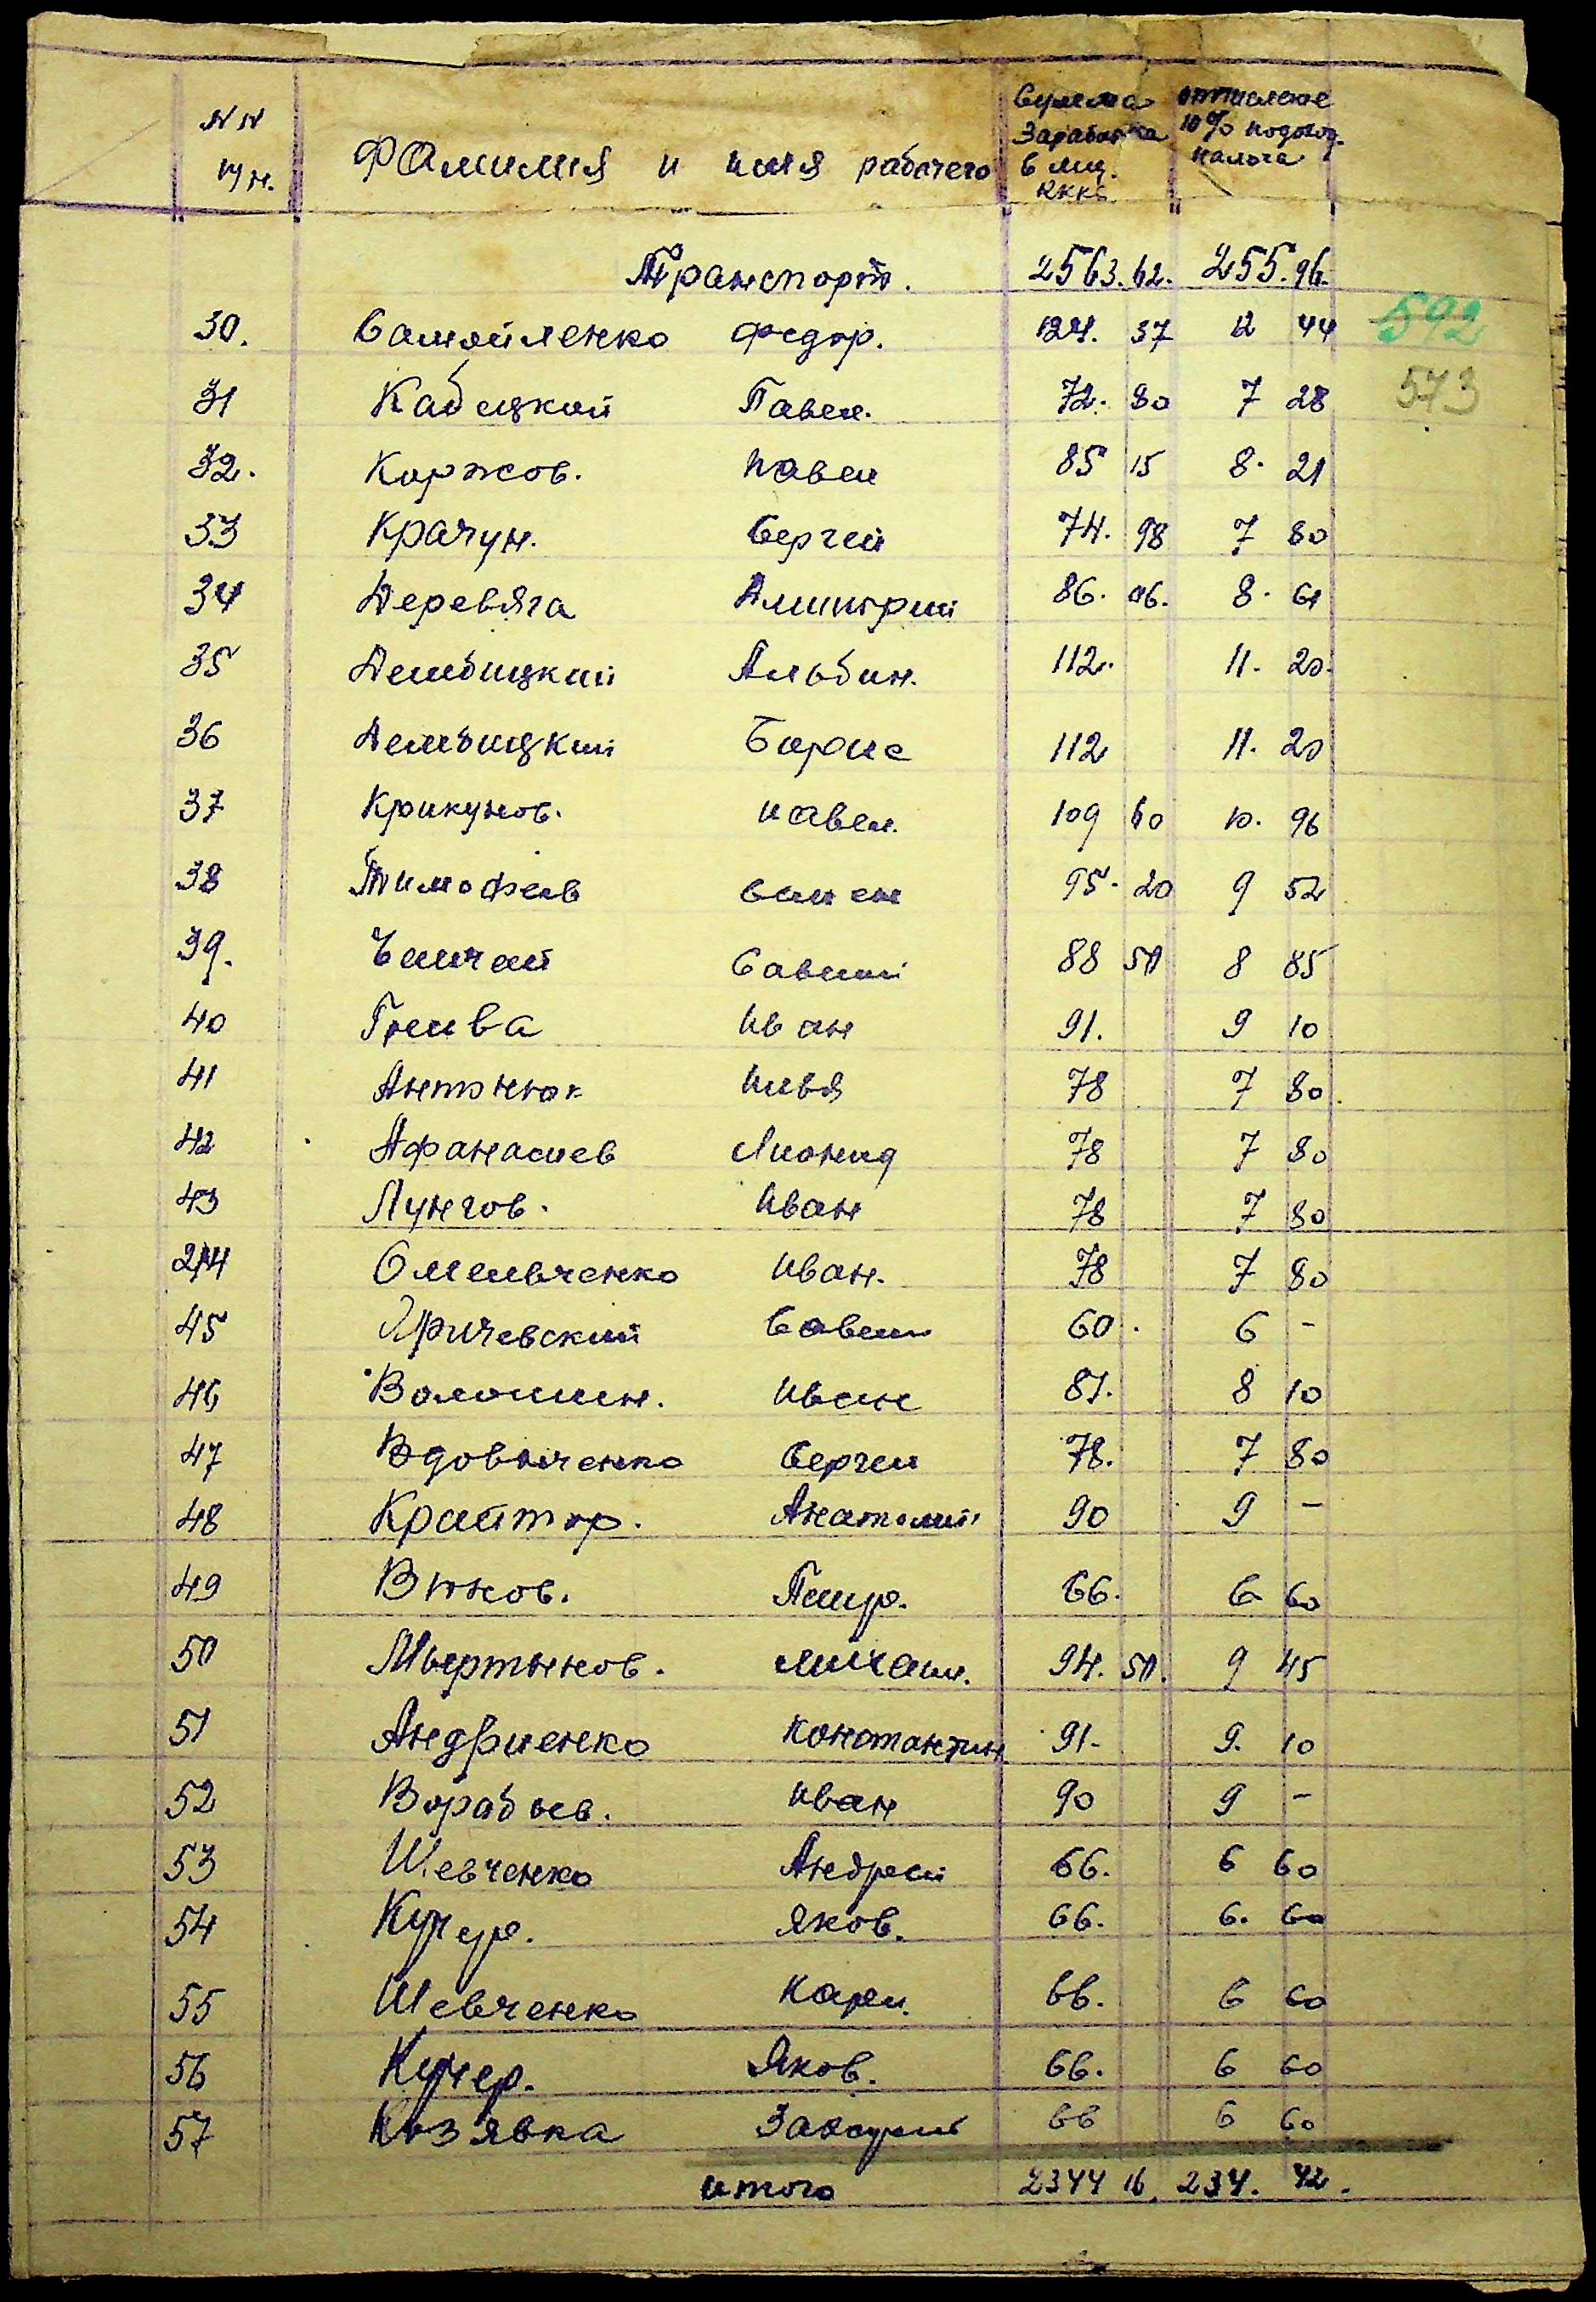 NN п/н. Фамилия и имя рабочего Сумма Заработка в мц. RKKS отчислено 10% подоход. налога
Транспорт. 2563.62. 255.96.
30. Самойленко Федор. 124. 37 12 44 592
31 Кабецкий Павел. 72. 80 7 28 573
32. Коржов. Павел 85 15 8. 21
33 Крачун. Сергей 74. 98 7 80
34 Деревяга Дмитрий 86. 06. 8. 61
35 Дембицкий Альбин. 112. 11. 20.
36 Дембицкий Борис 112 11. 20
37 Крикунов. Павел. 109 60 10. 96
38 Тимофеев 95. 20 9 52
39. 88 50 8 85
40 Грива Иван 91. 9 10
41 Антонюк Илья 78 7 80.
42 Афанасиев Лионид 78 7 80
43 Лунгов. Иван 78 7 80
44 Омельченко Иван. 78 7 80
45 Яричевский Савели 60. 6 –
46 Волошин. Иван 81. 8 10
47 Вдовыченко Сергеи 78. 7 80
48 Крайтор. Анатолий 90 9 –
49 Вюков. Петр. 66. 6 60
50 Мьертынов. Михаил. 94. 50. 9 45
51 Андриенко Константин 91- 9. 10
52 Воработев. Иван 90 9 –
53 Шевченко Андрей 66. 6 60
54 Кучер. Яков. 66. 6. 60
55 Шевченко Карл. 66. 6 60
56 Кучер. Яков. 66. 6 60
57 Козявка 66 6 60
итого 2344 16. 234. 42.